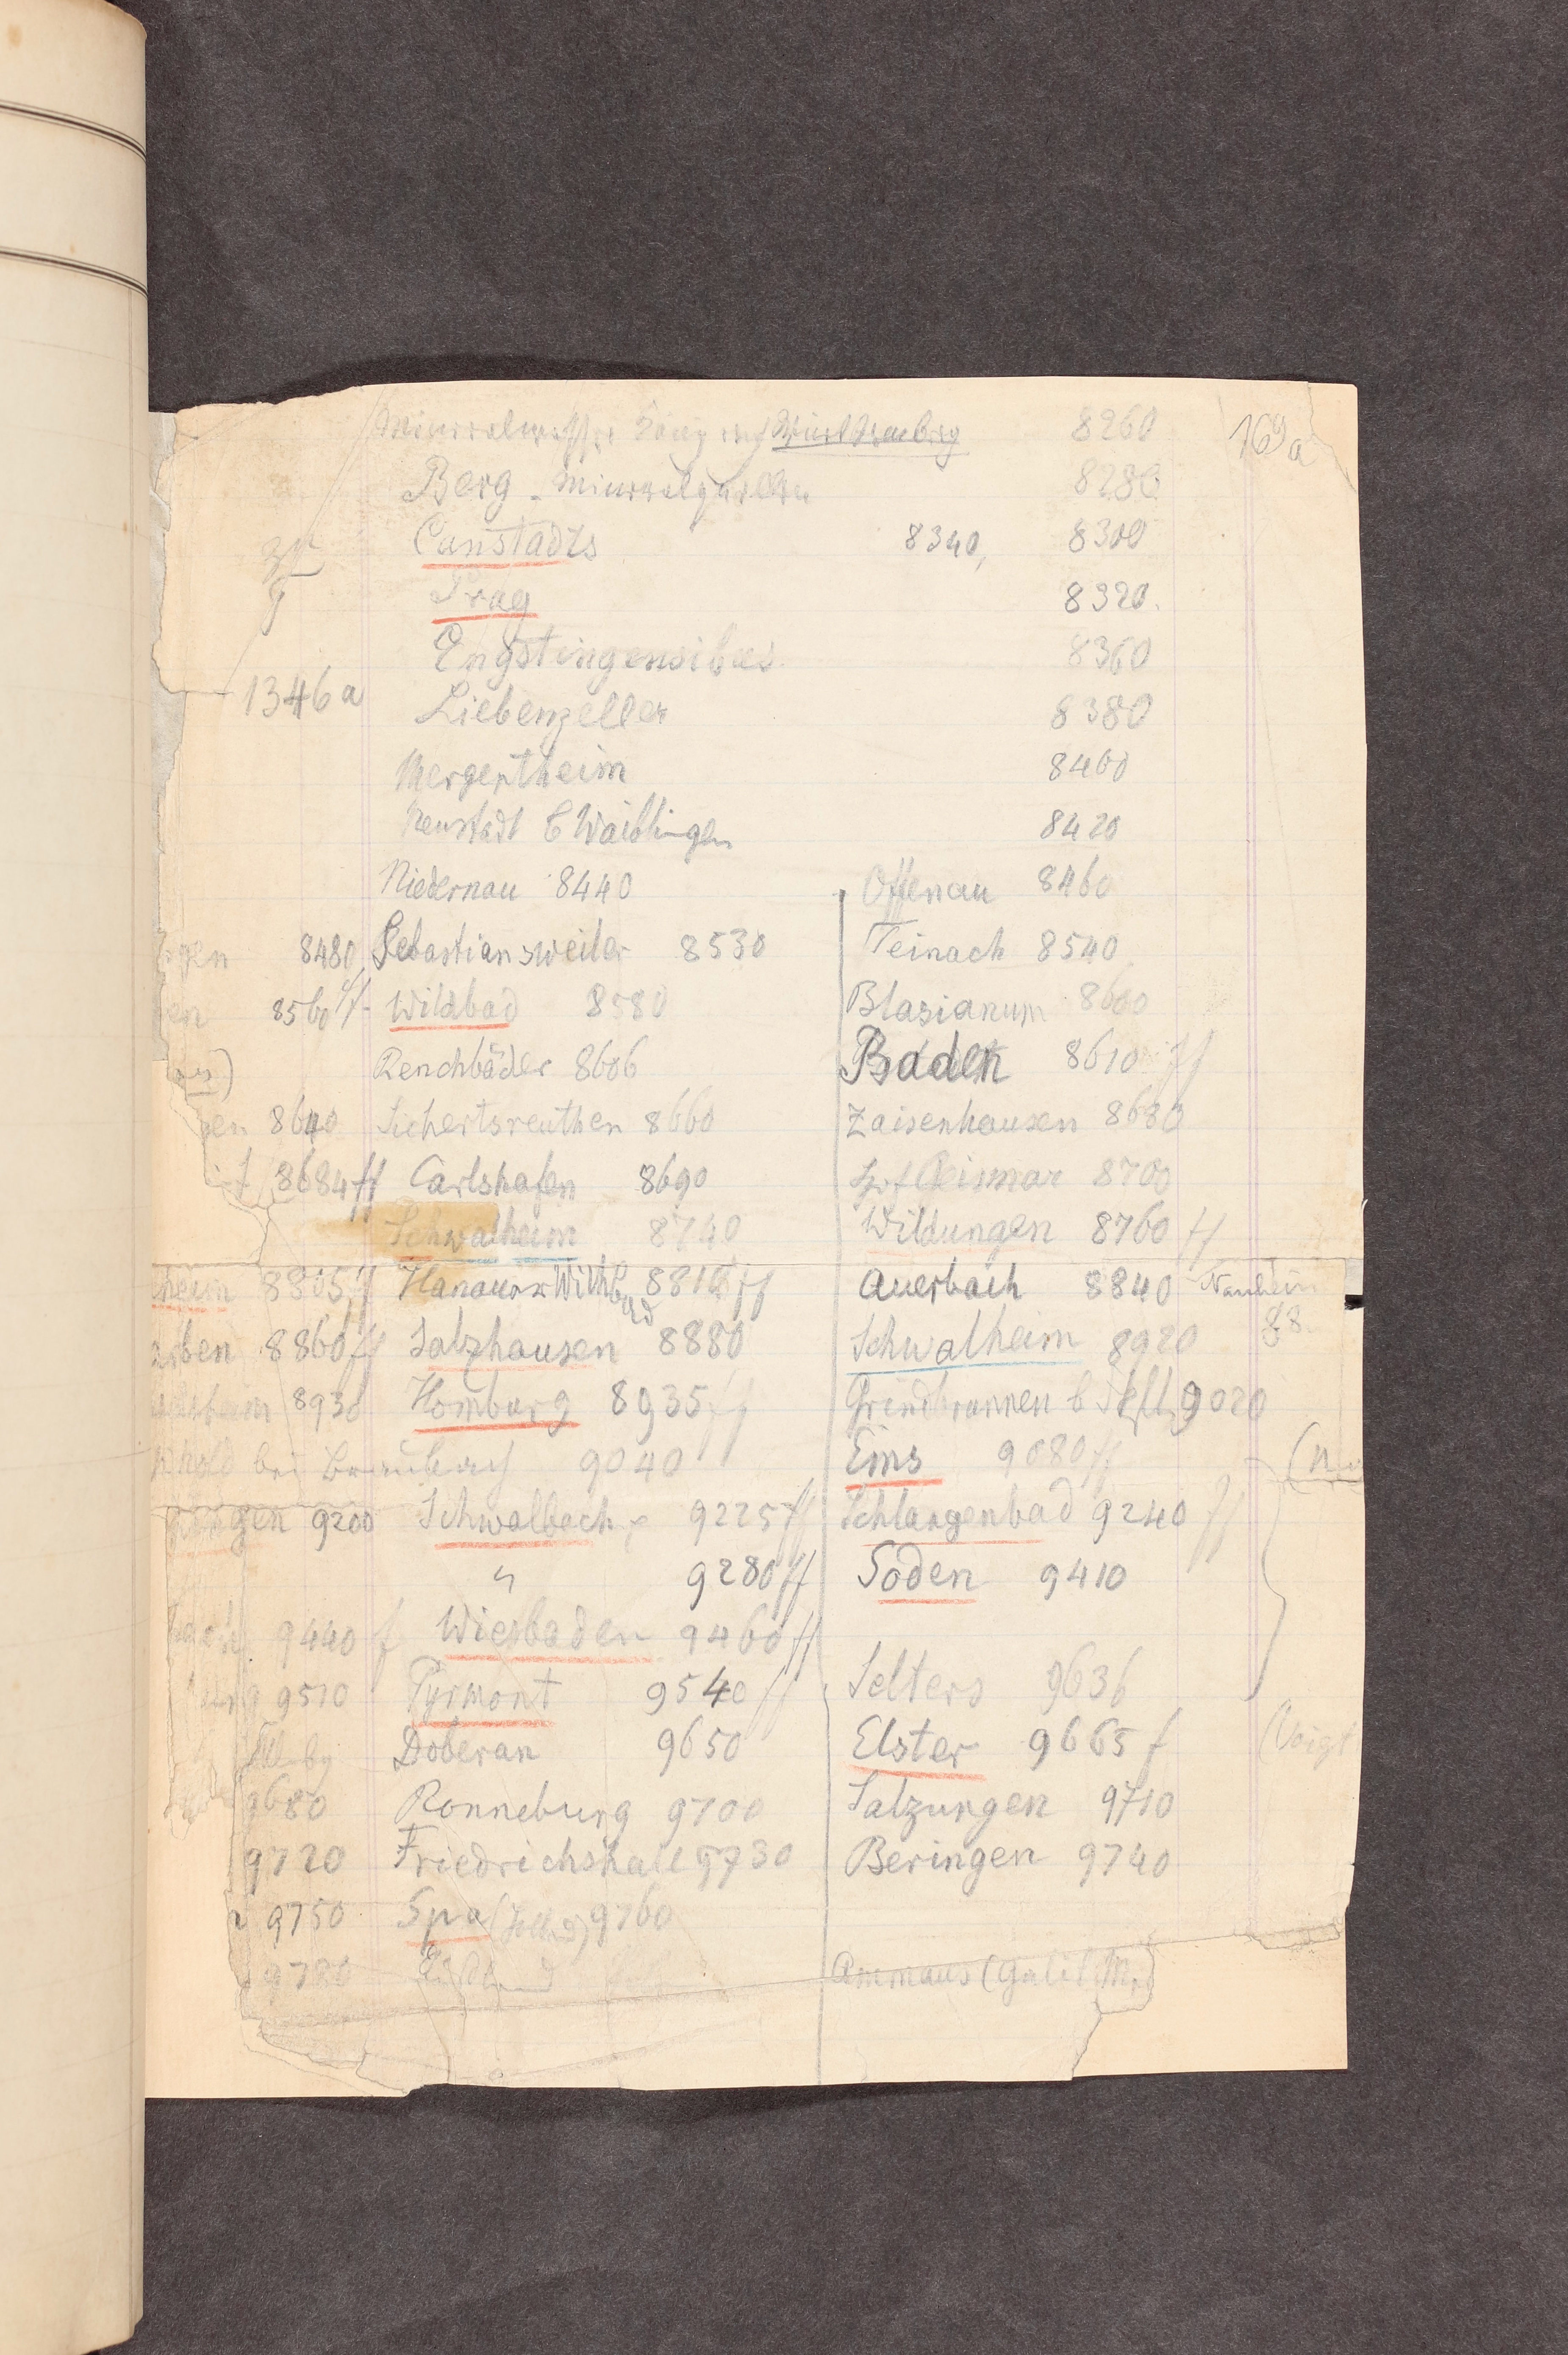 Mineralwasser König von Württemberg 8260 169a
Berg - Mineralquellen 8280
Canstadts 8340, 8300
Prag 8320.
Engstingensibus 8360
1346a Liebenzeller 8380
Mergentheim 8400
Neustadt b Waiblingen 8420
Niedernau 8440 Offenau 8460
8480 Sebastiansweiler 8530 Teinach 8540
8560 ff Wildbad 8580 Blasianum 8600
Renchbäder 8606 Baden 8610 ff
en 8640 Sichertsreuthen 8660 Zaisenhausen 8680
8684 ff Carlshafen 8690 Hofgeismar 8700
Schwalheim 8740 Wildungen 8760 ff
heim 8805 ff Hanauer Wilhbad 8810 ff Auerbach 8840 Nauheim
88
arben 8860 ff Salzhausen 8880 Schwalheim 8920
8930 Homburg 8935 ff Grindbrunnen b 9020
bei Braubach 9040 Ems 9080 ff (n
9200 Schwalbach 9225 ff Schlangenbad 9240 ff
" 9280 ff Soden 9410
9440 f Wiesbaden 9460 ff
9510 Pyrmont 9540 ff Selters 9636
Doberan 9650 Elster 9665 f (Voigt
9680 Ronneburg 9700 Salzungen 9710
9720 Friedrichshall 9730 Beringen 9740
9750 Spa 9760
9780 Ammaus